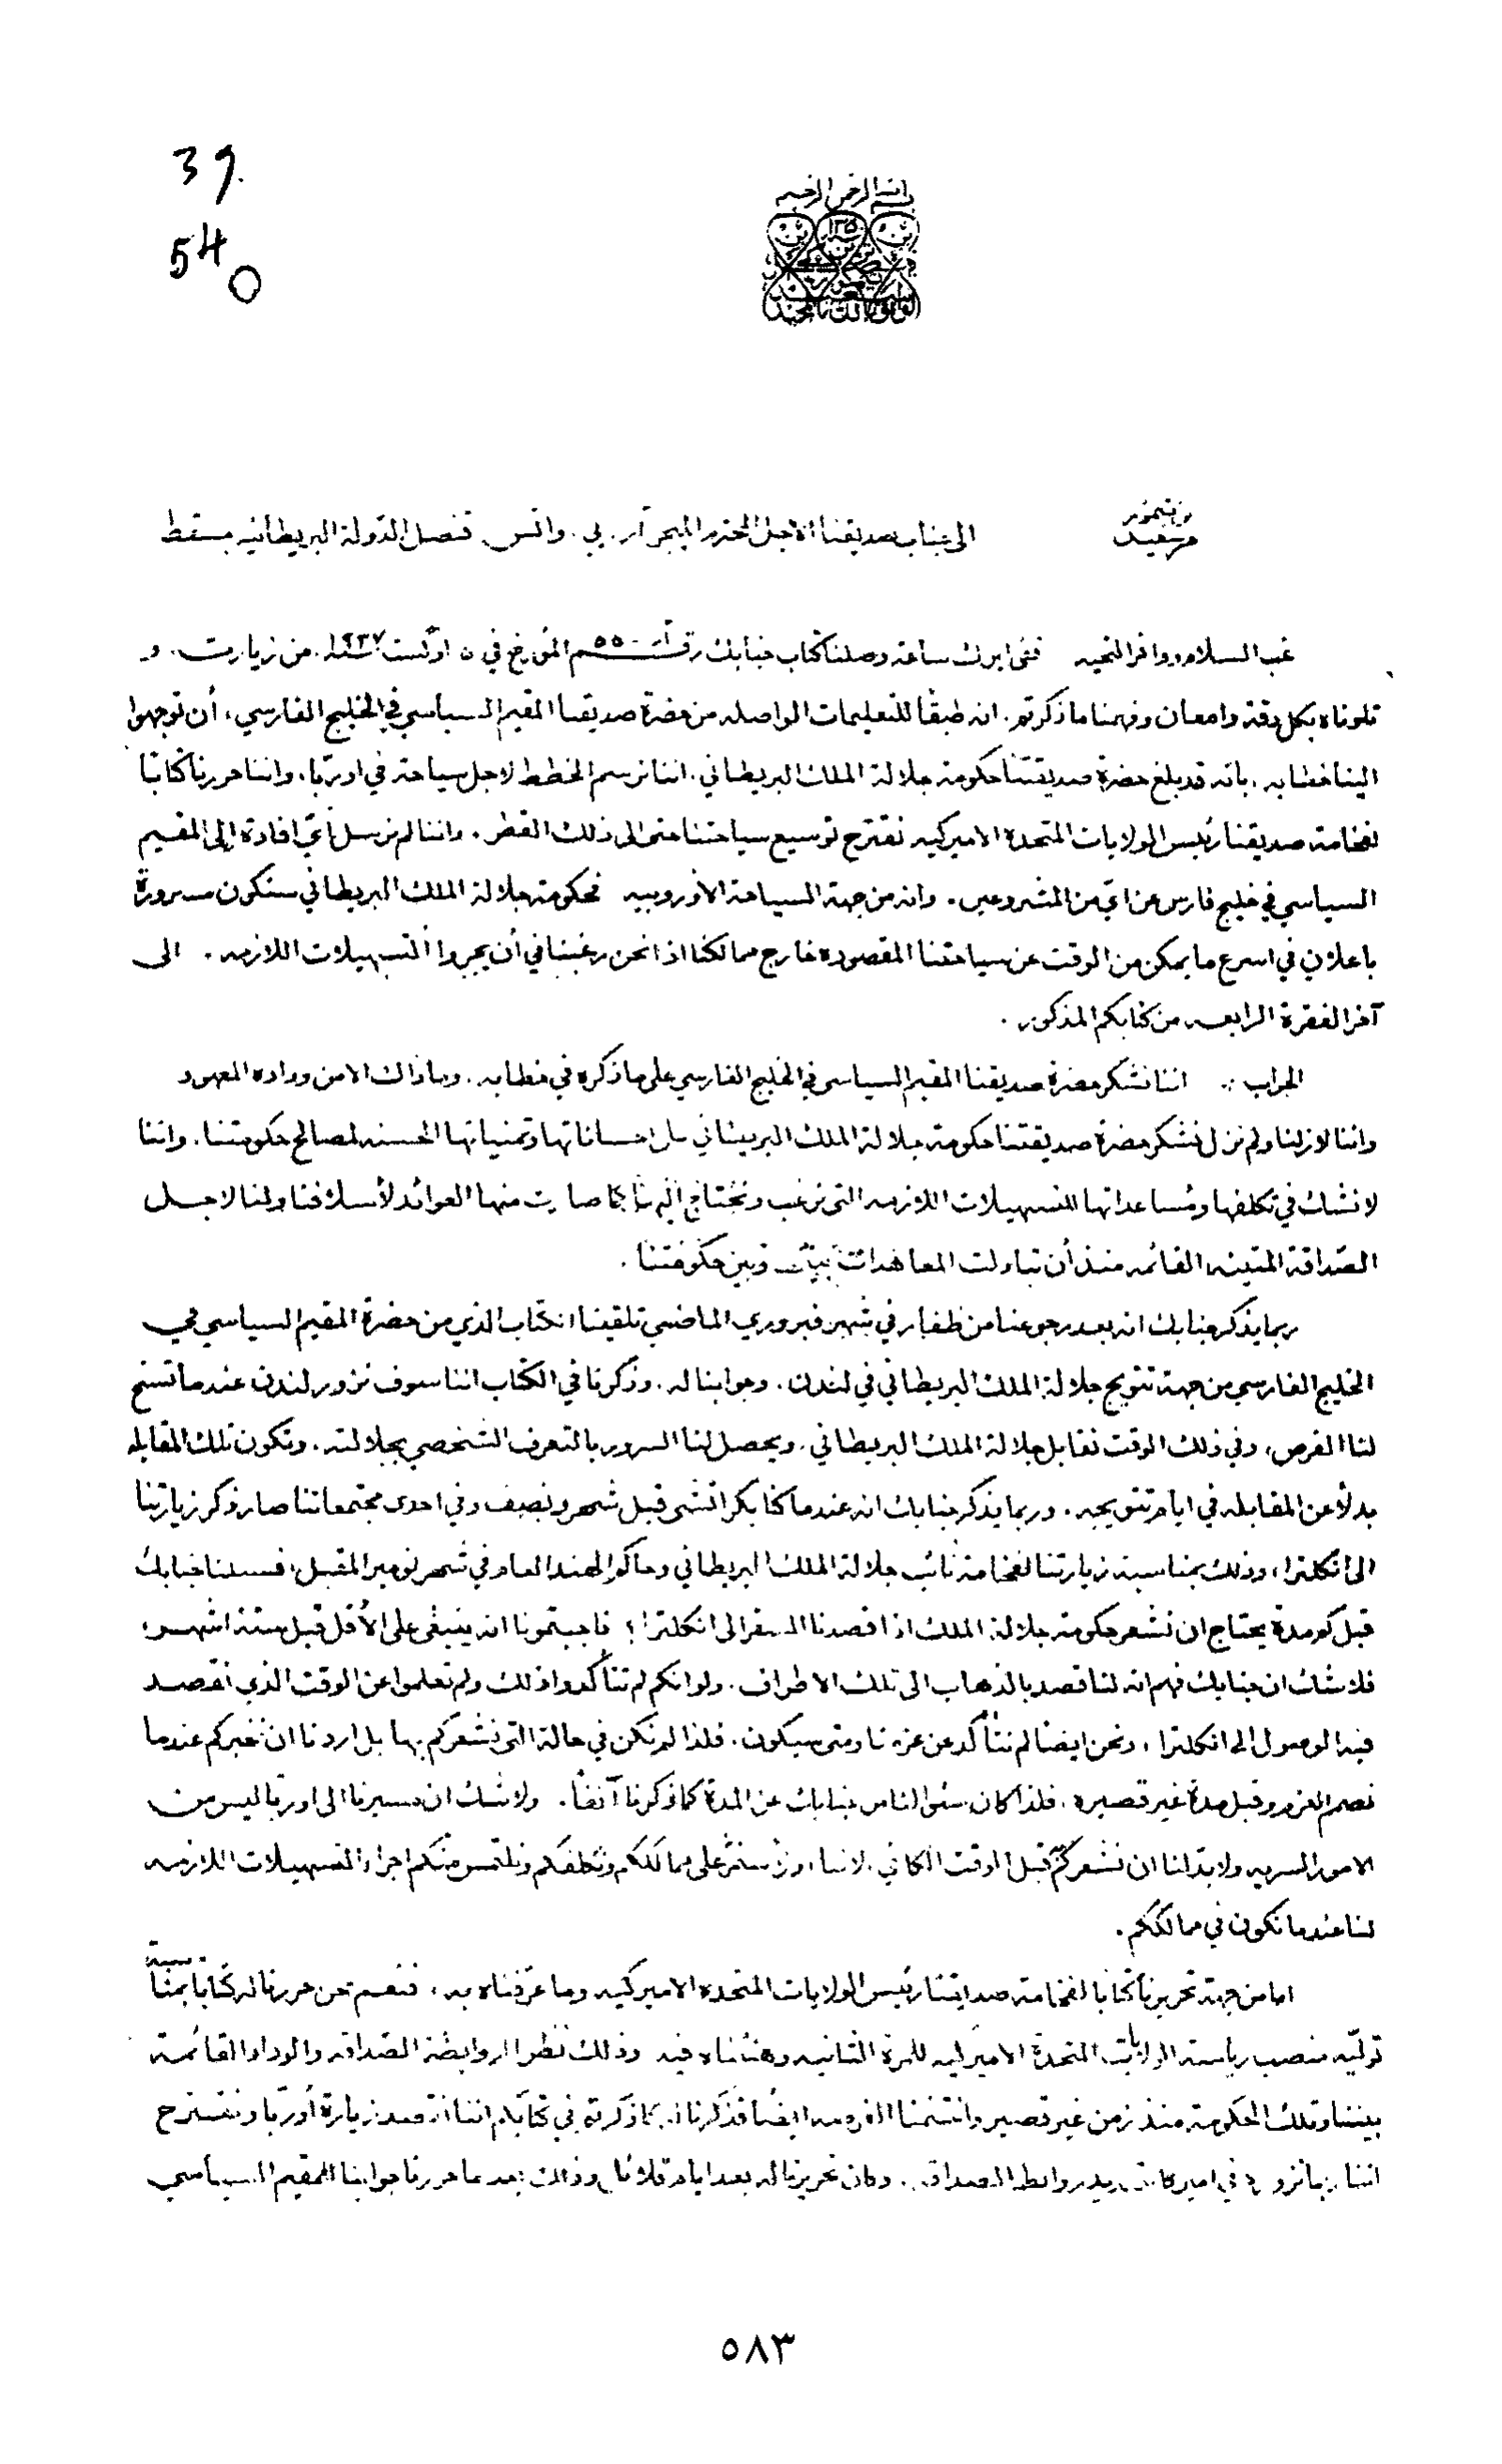 39.
54
0
بسم الله الرحمن الرحيم
من سعيد بن تيمور الى جناب صديقنا الاجل المحترم الميجر آر. بي. واتس قنصل الدولة البريطانيه بمسقط
غب السلام ووافر التحيه ففي ابرك ساعة وصلنا كتاب جنابك رقم ٥٥٠ المؤرخ في ٥ اوگست سنة ١٩٣٧ من زيارت. و
تلوناه بكل دقة وامعان وفهمنا ما ذكرتم. انه طبقًا للتعليمات الواصله من حضرة صديقنا المقيم السياسي في الخليج الفارسي، أن توجهوا
الينا خطابه. بانه قد بلغ حضرة صديقتنا حكومة جلالة الملك البريطاني. اننا نرسم الخطط لاجل سياحة في اوربّا، واننا حررنا كتابًا
لفخامة صديقنا رئيس الولايات المتحدة الاميركيه نقترح توسيع سياحتنا حتى الى ذلك القطر. واننا لم نرسل أيّ افادة إلى المقيم
السياسي في خليج فارس عن ايّ من المشروعين. وانه من جهة السياحة الأوروبيه فحكومة جلالة الملك البريطاني ستكون مسرورة
باعلان في اسرع ما يمكن من الوقت عن سياحتنا المقصوده خارج ممالكنا اذا نحن رغبنا في أن يجروا التسهيلات اللازمه. الى
آخر الفقرة الرابعه من كتابكم المذكور.
الجواب :. اننا نشكر حضرة صديقنا المقيم السياسي في الخليج الفارسي على ما ذكره في خطابه. وما ذاك الا من وداده المعهود
واننا لازلنا ولم نزل نشكر حضرة صديقتنا حكومة جلالة الملك البريطاني على احساناتها وتمنياتها الحسنه لمصالح حكومتنا. واننا
لا نشك في تكلفها ومساعداتها للتسهيلات اللازمه التي نرغب ونحتاج اليها كما صارت منها العوائد لأسلافنا ولنا لاجل
الصّداقة المتينه القائمه منذ أن تبادلت المعاهدات بينها وبين حكومتنا.
ربما يذكر جنابك انه بعد رجوعنا من ظفار في شهر فبروري الماضي تلقينا الكتاب الذي من حضرة المقيم السياسي في
الخليج الفارسي من جهة تتويج جلالة الملك البريطاني في لندن. وجوابنا له. وذكرنا في الكتاب اننا سوف نزور لندن عندما تسنح
لنا الفرص، وفي ذلك الوقت نقابل جلالة الملك البريطاني. ويحصل لنا السرور بالتعرف الشخصي بجلالته. وتكون تلك المقابله
بدلًا عن المقابله في ايام تتويجه. وربما يذكر جنابك انه عندما كنا بكراتشي قبل شهر ونصف وفي احدى مجتمعاتنا صار ذكر زيارتنا
الى انكلترا، وذلك بمناسبة زيارتنا لفخامة نائب جلالة الملك البريطاني وحاكم الهند العام في شهر نومبر المقبل، فسئلنا جنابك
قبل كم مدة يحتاج ان نشعر حكومة جلالة الملك اذا قصدنا السفر الى انكلترا؟ فاجبتمونا انه ينبغي على الأقل قبل ستة اشهر،
فلا شك ان جنابك فهم انه لنا قصد بالذهاب الى تلك الاطراف. ولو انكم لم تتأكدوا ذلك ولم تعلموا عن الوقت الذي نقصد
فيه الوصول الى انكلترا، ونحن ايضا لم نتأكد عن عزمنا ومتى سيكون. فلذا لم نكن في حالة التي نشعركم بها بل اردنا ان نخبركم عندما
نصمم العزم وقبل مدة غير قصيره. فلذا كان سؤالنا من جنابك عن المدة كما ذكرنا آنفًا. ولا شك ان مسيرنا الى اوربّا ليس من
الامور السريه ولا بدّ لنا ان نشعركم قبل الوقت الكافي لاننا سنمر على ممالككم ونكلفكم ونلتمس منكم اجراء التسهيلات اللازمه
لنا عندما نكون في ممالككم.
اما من جهة تحريرنا كتابا لفخامة صديقنا رئيس الولايات المتحده الاميركيه وما عرّفناه به، فنعم نحن حررنا له كتاباً بمناسبة
تولّيه منصب رياسة الولايات المتحدة الاميركيه للمرة الثانيه وهنئناه فيه وذلك نظرا لروابط الصّداقه والوداد القائمة
بيننا وتلك الحكومة منذ زمن غير قصير وانتهزنا الفرصه ايضًا فذكرنا له كما ذكرتم في كتابكم اننا نقصد زيارة أوربّا ونقترح
اننا ربما نزوره في اميركا لتجديد روابط الصداقه. وكان تحريرنا له بعد ايام قلائل وذلك بعد ما حررنا جوابنا للمقيم السياسي
٥٨٣